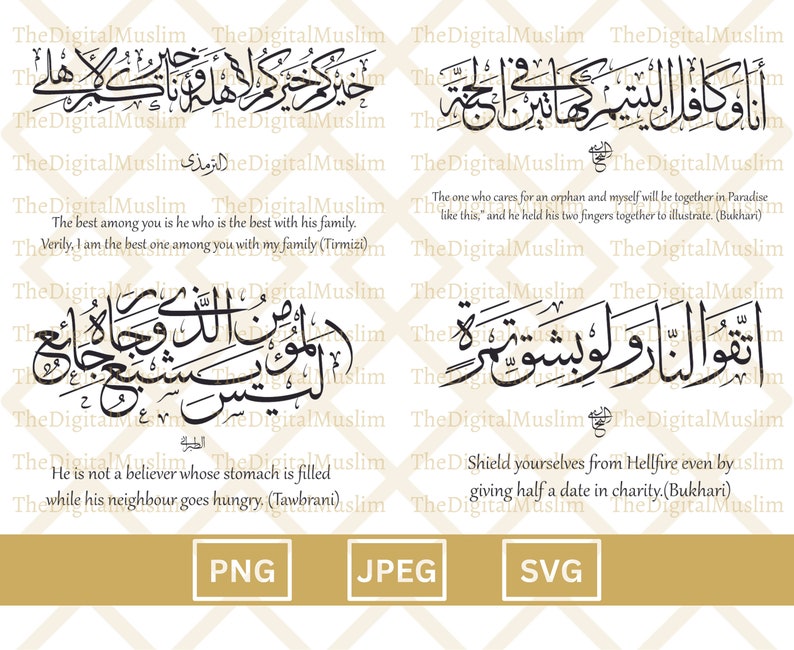 TheDigitalMuslim TheDigitalMuslim TheDigitalMuslim TheDigitalMuslim
خيركم خيركم لأهله وأنا خيركم لأهلي
الترمذي
The best among you is he who is the best with his family.
Verily, I am the best one among you with my family (Tirmizi)
أنا وكافل اليتيم كهاتين في الجنة
The one who cares for an orphan and myself will be together in Paradise
like this,” and he held his two fingers together to illustrate. (Bukhari)
ليس المؤمن الذي يشبع وجاره جائع
He is not a believer whose stomach is filled
while his neighbour goes hungry. (Tawbrani)
اتَّقُوا النَّار ولو بشقِّ تمرة
Shield yourselves from Hellfire even by
giving half a date in charity.(Bukhari)
PNG JPEG SVG